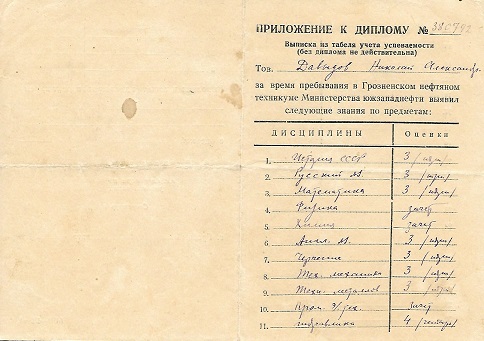 ПРИЛОЖЕНИЕ К ДИПЛОМУ №
Выписка из табеля учета успеваемости
(без диплома не действительна)
Тов. Давыдов Николай Александр.
за время пребывания в Грозненском нефтяном
техникуме Министерства южзападнефти выявил
следующие знания по предметам:
ДИСЦИПЛИНЫ Оценки
1. История СССР 3 /пдср/
2. Русский яз. 3 /пдср/
3. Математика 3 /пдср/
4. Физика зачет
5. Химия зачет
6. Англ. яз. 3
7. Черчение 3
8. Тех. механика 3
9. Техн. металлов 3
10. Пром. э/тех. зачет
11. гидравлика 4